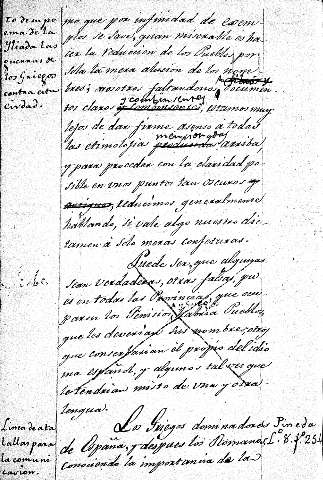 to de su po
ema de la
Iliada las
guerras de
los Griegos
contra esta
Ciudad.
mo que por infinidad de exem-
plos se save, quan miserable es ha-
cer la reducion de los Pueblos por
sola la mera alusion de los nom-
bres; nosotros faltandonos Documen-
tos claros y convincentes, estamos muy
lejos de dar firme asenso à todas
las etimologias mencionadas arriba
y para proceder con la claridad po-
sible en unos puntos tan oscuros
reducimos generalmente
hablando, si vale algo nuestro dic-
tamen à solo meras conjeturas.
Puede ser, que algunas
sean verdaderas, otras falsas, pu
es en todas las Provincias, que ocu-
paron los Fenicios, habria Pueblos,
que les deverian sus nombres, otros
que conservarian el propio del idio
ma español, y algunos tal ves que
lo tendrian misto de una y otra
lengua.
Linea de ata
layas para
la comuni
cacion.
Los Griegos dominadores
de España, y despues los Romanos,
conociendo la importancia de la
Pineda
L.º 8. fº 254